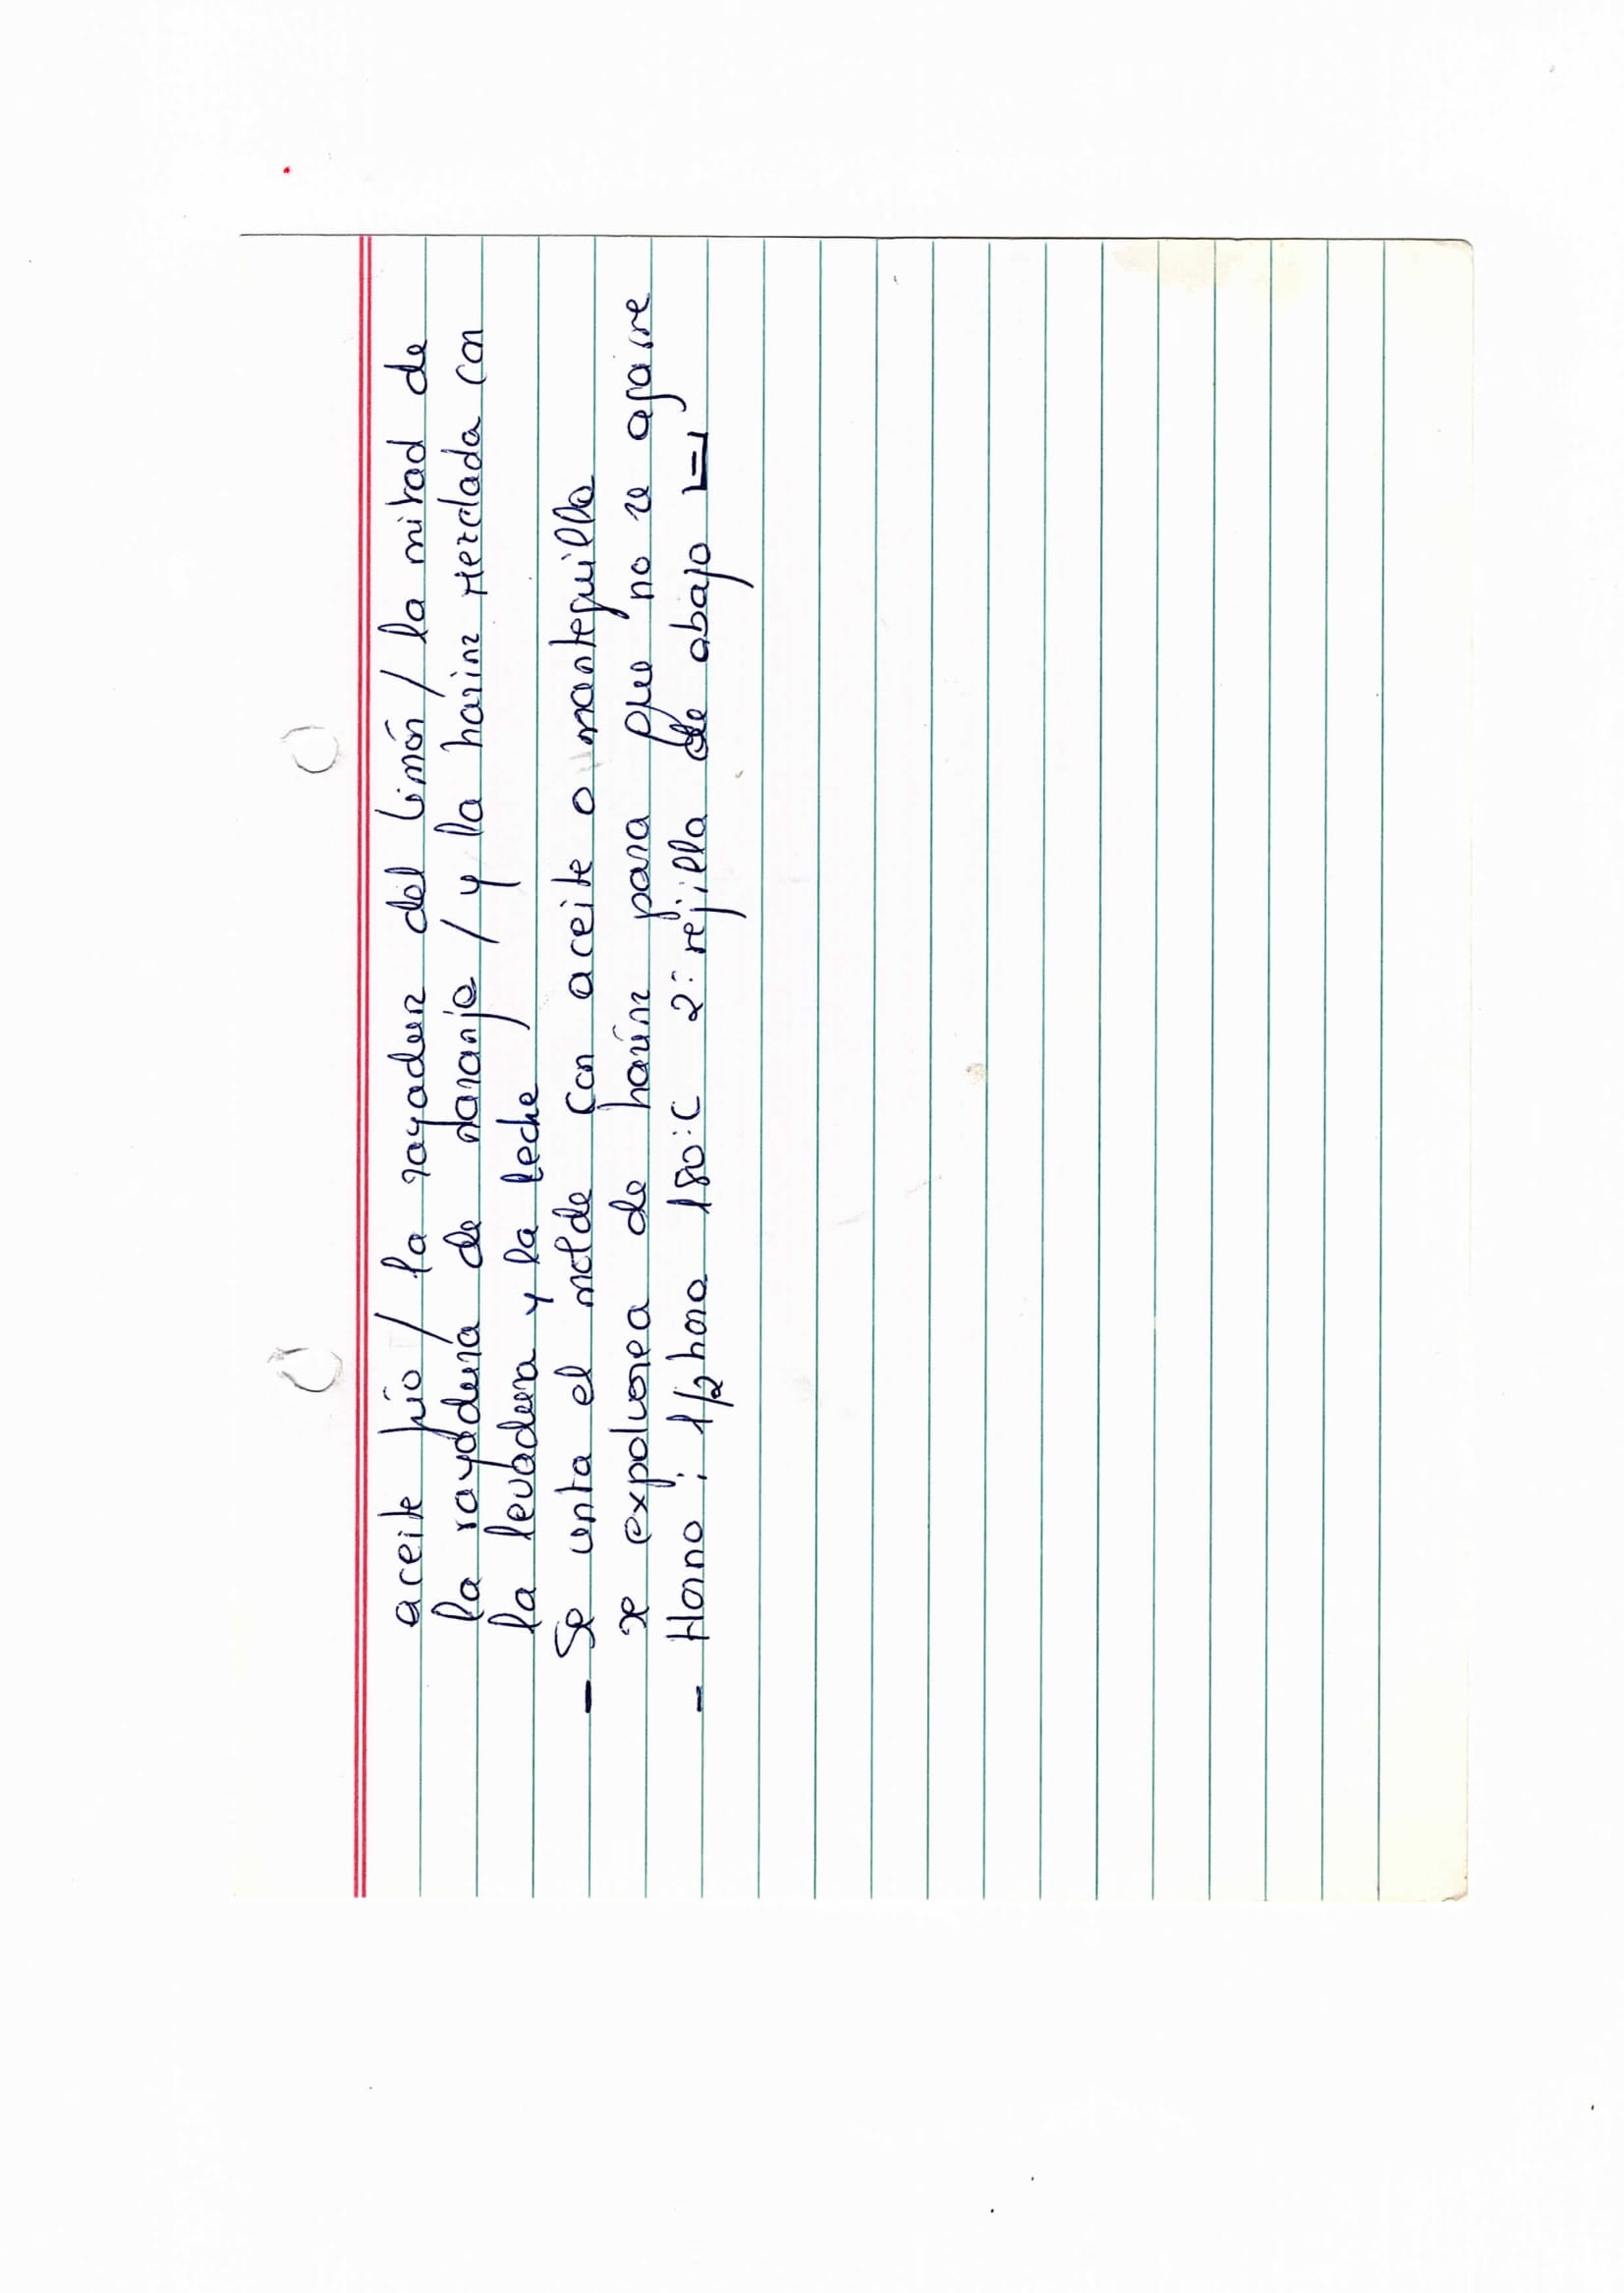 aceite frío / la rayadura del limón / la mitad de
la rayadura de naranja / y la harina mezclada con
la levadura y la leche
- Se unta el molde con aceite o mantequilla
se expolvorea de harina para que no se agarre
- Horno: 1/2 hora 180ºC 2ª rejilla de abajo